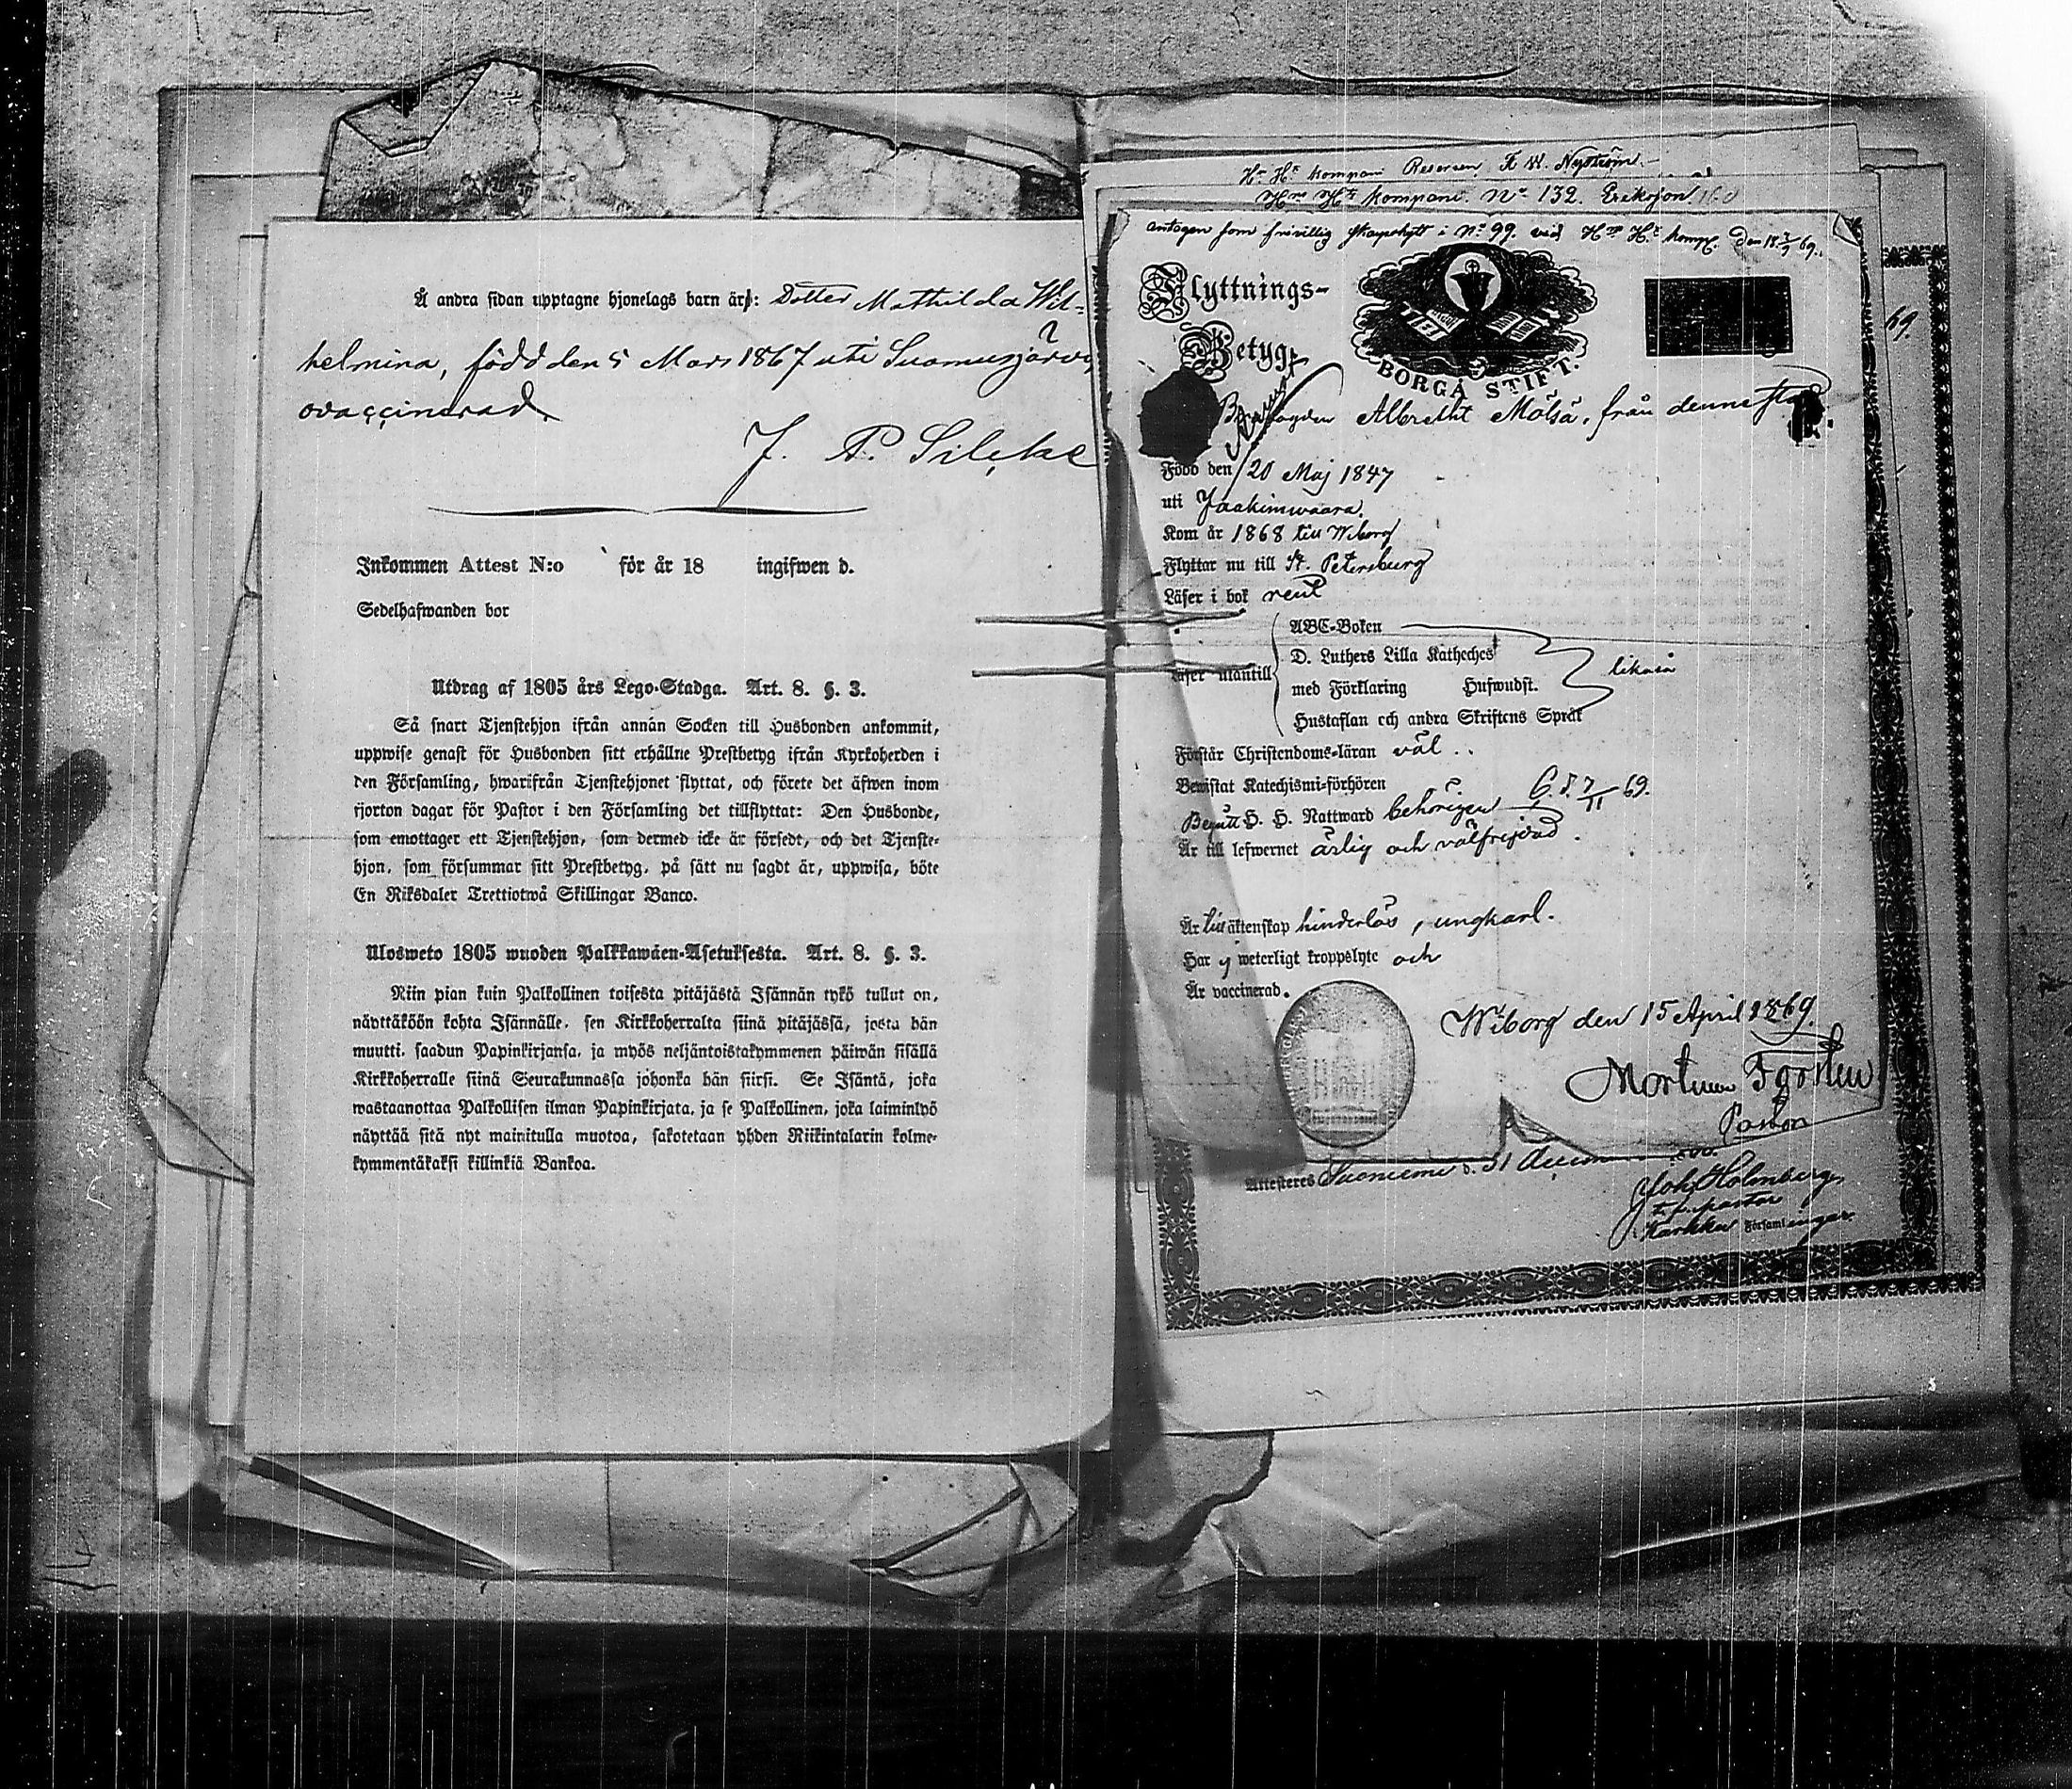 Å andra sidan upptagne hjonelags barn är: Dotter Mathilda Wil-
helmina, född den 5 Mars 1867 uti Suomusjärvi,
ovaccinerad
J. A.
Inkommen Attest N:o för år 18 ingifwen d.
Sedelhafwanden bor
Utdrag af 1805 års Lego-Stadga. Art. 8. §. 3.
Så snart Tjenstehjon ifrån annan Socken till Husbonden ankommit,
uppwise genast för Husbonden sitt erhållne Prestbetyg ifrån Kyrkoherden i
den Församling, hwarifrån Tjenstehjonet flyttat, och förete det äfwen inom
fjorton dagar för Pastor i den Församling det tillflyttat: Den Husbonde,
som emottager ett Tjenstehjon, som dermed icke är försedt, och det Tjenste-
hjon, som försummar sitt Prestbetyg, på sätt nu sagdt är, uppwisa, böte
En Riksdaler Trettiotwå Skillingar Banco.
Ulosweto 1805 wuoden Palkkawäen-Asetuksesta. Art. 8. §. 3.
Niin pian kuin Palkollinen toisesta pitäjästä Isännän tykö tullut on,
näyttäköön kohta Isännälle, sen Kirkkoherralta siinä pitäjässä, josta hän
muutti, saadun Papinkirjansa, ja myös neljäntoistakymmenen päiwän sisällä
Kirkkoherralle siinä Seurakunnassa johonka hän siirsi. Se Isäntä, joka
wastaanottaa Palkollisen ilman Papinkirjata, ja se Palkollinen, joka laiminlyö
näyttää sitä nyt mainitulla muotoa, sakotetaan yhden Riikintalarin kolme-
kymmentäkaksi killinkiä Bankoa.
kompani F. W. Nyström.
kompani. No 132. Erikson
antagen som frivillig skarpskytt i No 99. vid komp. Den 18 69.
Flyttnings-
Betyg.
BORGÅ STIFT.
Albrecht Mölsä, från denne
Född den 20 Maj 1847
uti Jaakimwaara.
Kom år 1868 till Wiborg
Flyttar nu till St. Petersburg
Läser i bok rent
Läser utantill
ABC-Boken
D. Luthers Lilla Katheches
med Förklaring Hufwudst.
Hustaflan och andra Skriftens Språk
likaså
Förstår Christendoms-läran väl
Bewistat Katechismi-förhören
Begått H. H. Nattward behörigen 7/11 69.
Är till lefwernet ärlig och välfrejdad.
Är till äktenskap hinderlös, ungkarl.
Har ej weterligt kroppslyte och
Är vaccinerad.
Wiborg den 15 April 1869.
Pastor
Attesteres Suoniemi d. 31
Joh. Holmberg
Karkku Församlingar.
69.